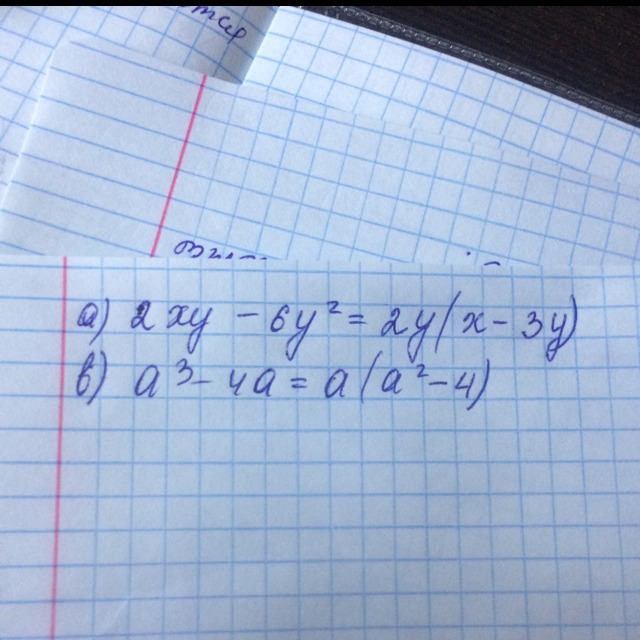 а) 2xy - 6y² = 2y(x - 3y)
в) a³ - 4a = a(a² - 4)